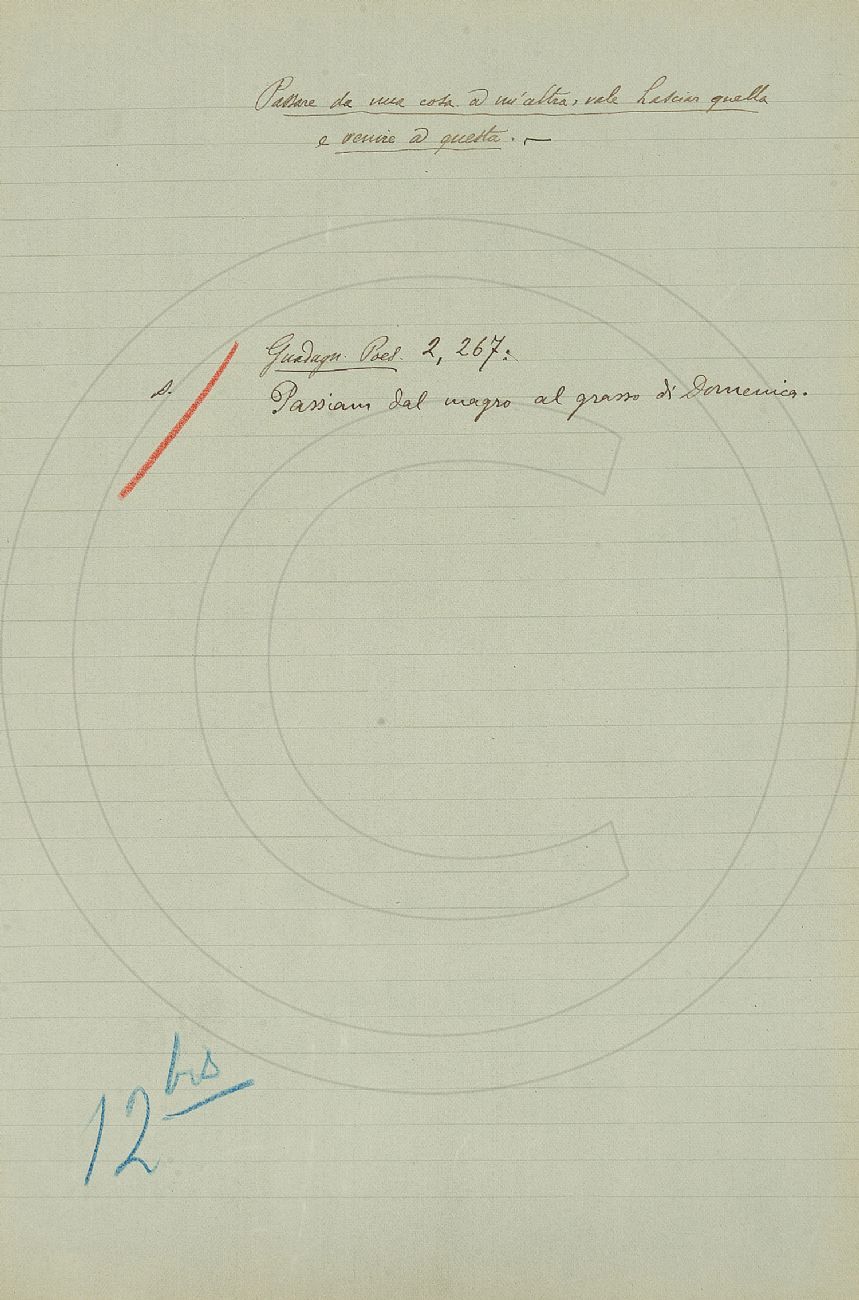 Passare da una cosa ad un'altra, vale Lasciar quella
e venire a questa. —
Guadagn. Poes. 2, 267:
s.
Passiam dal magro al grasso di Domenica.
12 bis